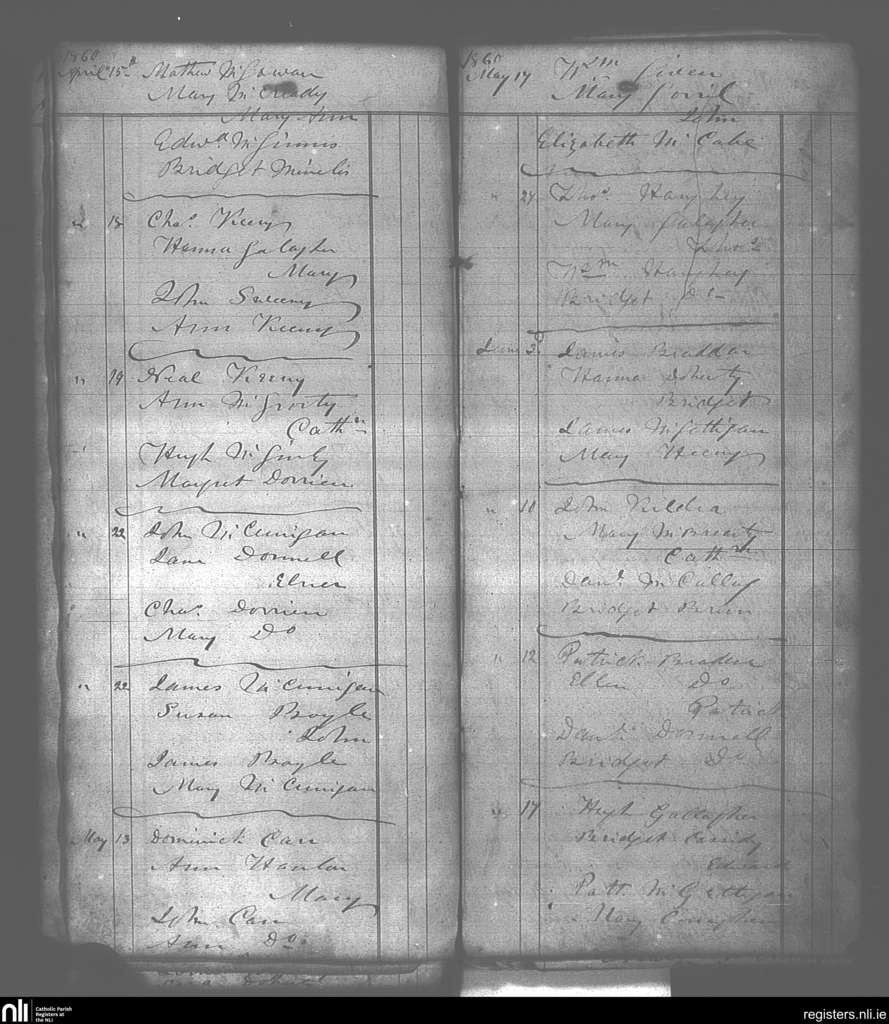 1860
April 15th Mathew McGowan
Mary McCready
Mary Ann
Edwd. McGinnis
Bridget
" 18 Chas. Keeny
Hanna Galagher
Mary
John Sweeny
Ann Keeny
" 19 Neal Keeny
Ann McGrorty
Cathn
Hugh McGinly
Margret Dorrien
" 22 John McCunigan
Jane Donnell
Elner
Chas. Dorrien
Mary Do
" 22 James McCunigan
Susan Boyle
John
James Boyle
Mary McCunigan
May 13 Dominick Carr
Ann Hanlon
Mary
John Carr
Ann Do
1860
May 17 Wm Given
Mary
John
Elizabeth McCabe
" 24 Thos. Haughey
Mary Galagher
Thos.
Wm Haughey
Bridget Do
June 3d James Braddan
Hanna Doherty
Bridget
James McGettigan
Mary Heeny
" 10 John Kildea
Mary McBrearty
Cathn
Danl. McCullag
Bridget
" 12 Patrick Braden
Ellen Do
Patrick
Danl. Donnell
Bridget Do
" 17 Hugh Gallagher
Bridget Cassidy
Edward
Patt. McGettigan
Mary
nli
Catholic Parish
Registers at
the NLI
registers.nli.ie